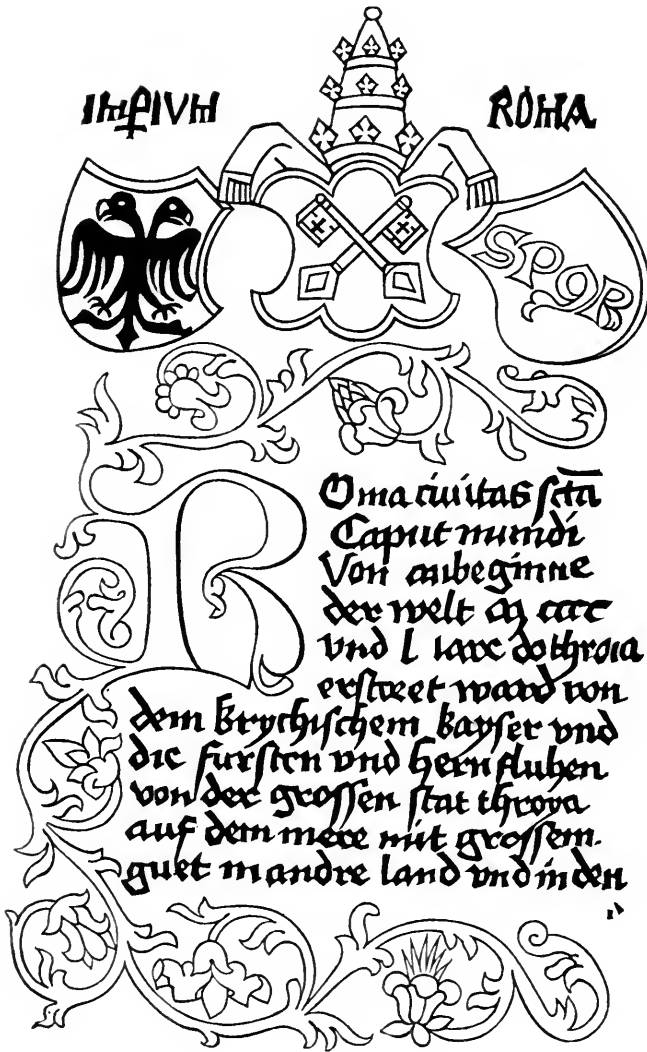 IMPIVM
ROMA
SPQR
ROma ciuitas sctā
Caput mundi
Von anbeginne
der welt M cccc
vnd l iare do throia
erstoret ward von
dem krychischem kayser vnd
die fursten vnd hern fluhen
von der grossen stat throya
auf dem mere mit grossem
guet in andre land vnd in den